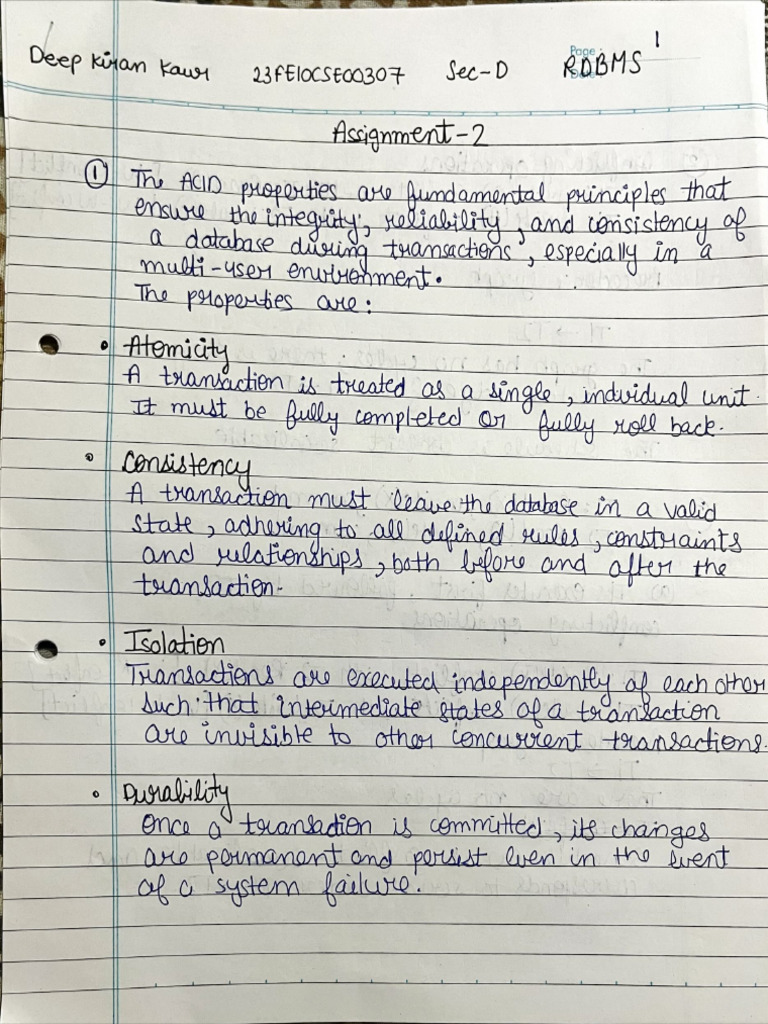 Deep Kiran Kaur 23FE10CSE00307 Sec-D RDBMS 1
Page
Assignment-2
① The ACID properties are fundamental principles that
ensure the integrity, reliability, and consistency of
a database during transactions, especially in a
multi-user environment.
The properties are:
• Atomicity
A transaction is treated as a single, individual unit.
It must be fully completed or fully roll back.
• Consistency
A transaction must leave the database in a valid
state, adhering to all defined rules, constraints
and relationships, both before and after the
transaction.
• Isolation
Transactions are executed independently of each other
such that intermediate states of a transaction
are invisible to other concurrent transactions.
• Durability
Once a transaction is committed, its changes
are permanent and persist even in the event
of a system failure.